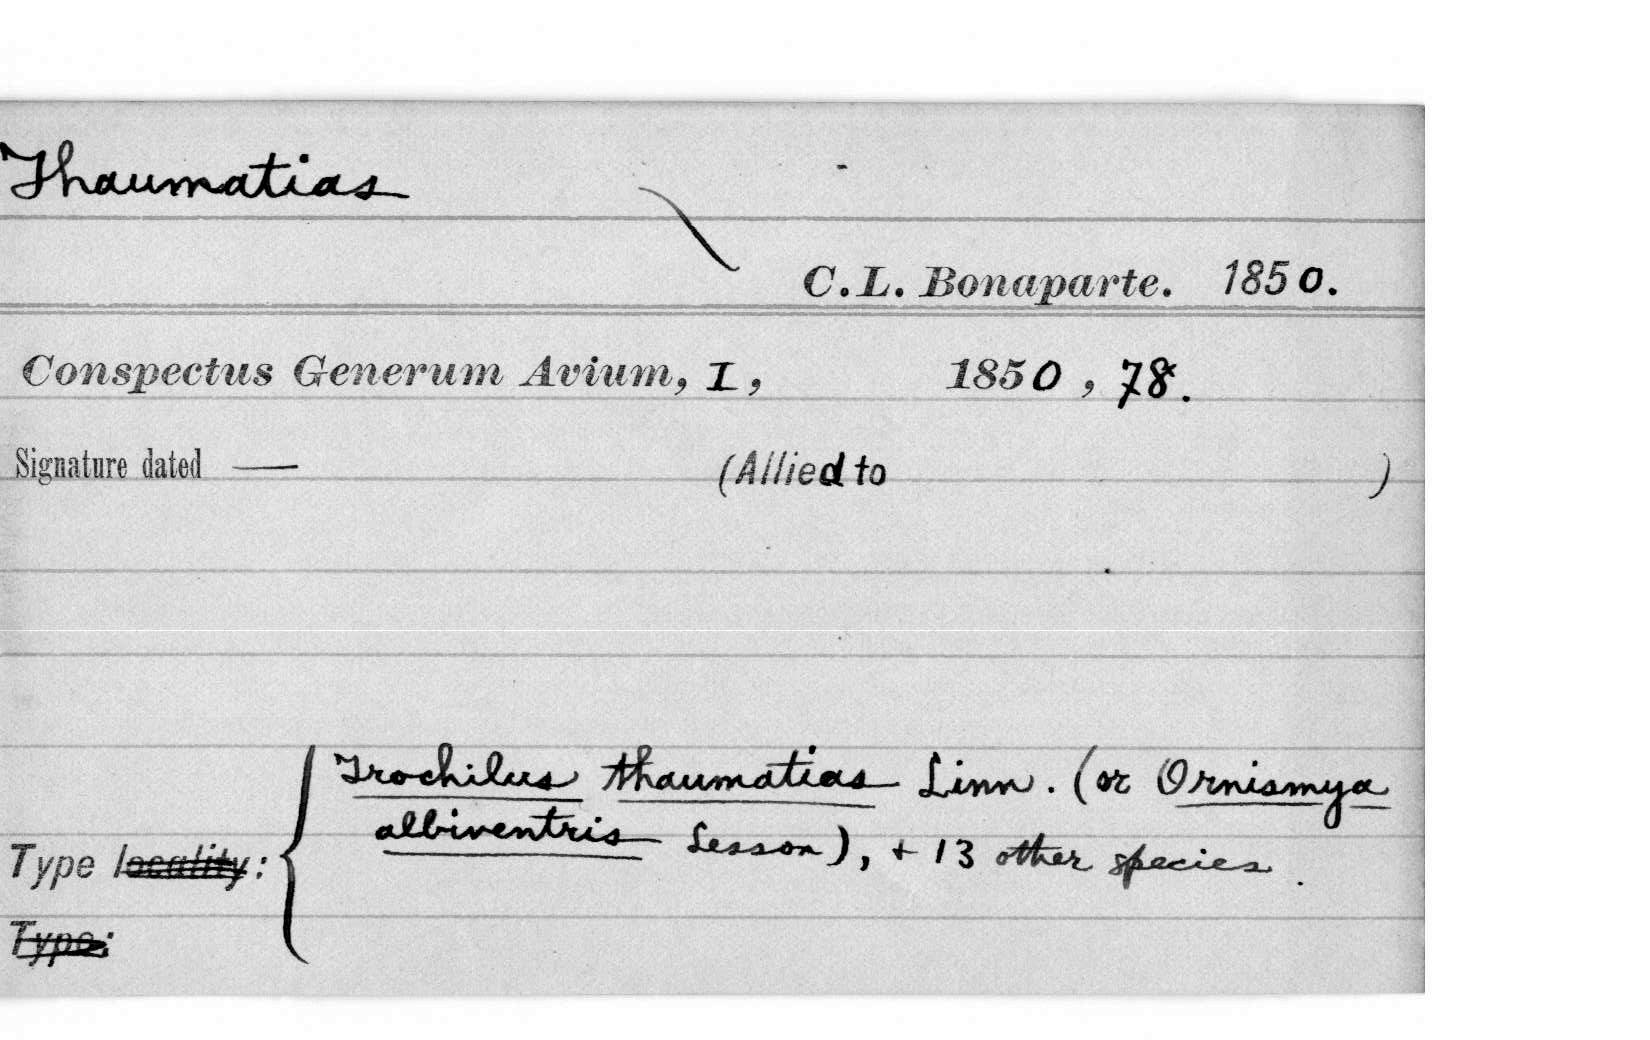 Thaumatias
C.L. Bonaparte. 1850.
Conspectus Generum Avium, I, 1850, 78.
Signature dated — (Allied to )
Trochilus thaumatias Linn. (or Ornismya
albiventris Lesson), + 13 other species.
Type locality:
Type: